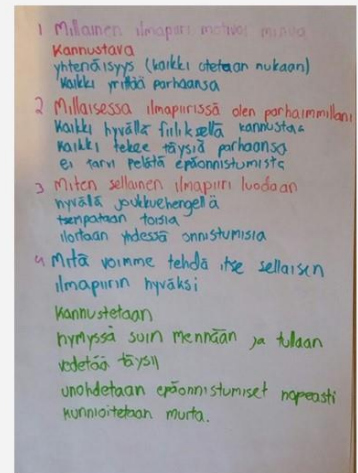 1 Millainen ilmapiiri motivoi minua
Kannustava
yhtenäisyys (kaikki otetaan mukaan)
kaikki yrittää parhaansa
2 Millaisessa ilmapiirissä olen parhaimmillani
Kaikki hyvällä fiiliksellä kannustava
kaikki tekee täysiä parhaansa
ei tarvi pelätä epäonnistumista
3 Miten sellainen ilmapiiri luodaan
hyvällä joukkuehengellä
tsempataan toisia
iloitaan yhdessä onnistumisia
4 Mitä voimme tehdä itse sellaisen
ilmapiirin hyväksi
Kannustetaan
hymyssä suin mennään ja tullaan
vedetää täysii
unohdetaan epäonnistumiset nopeasti
kunnioitetaan muita.